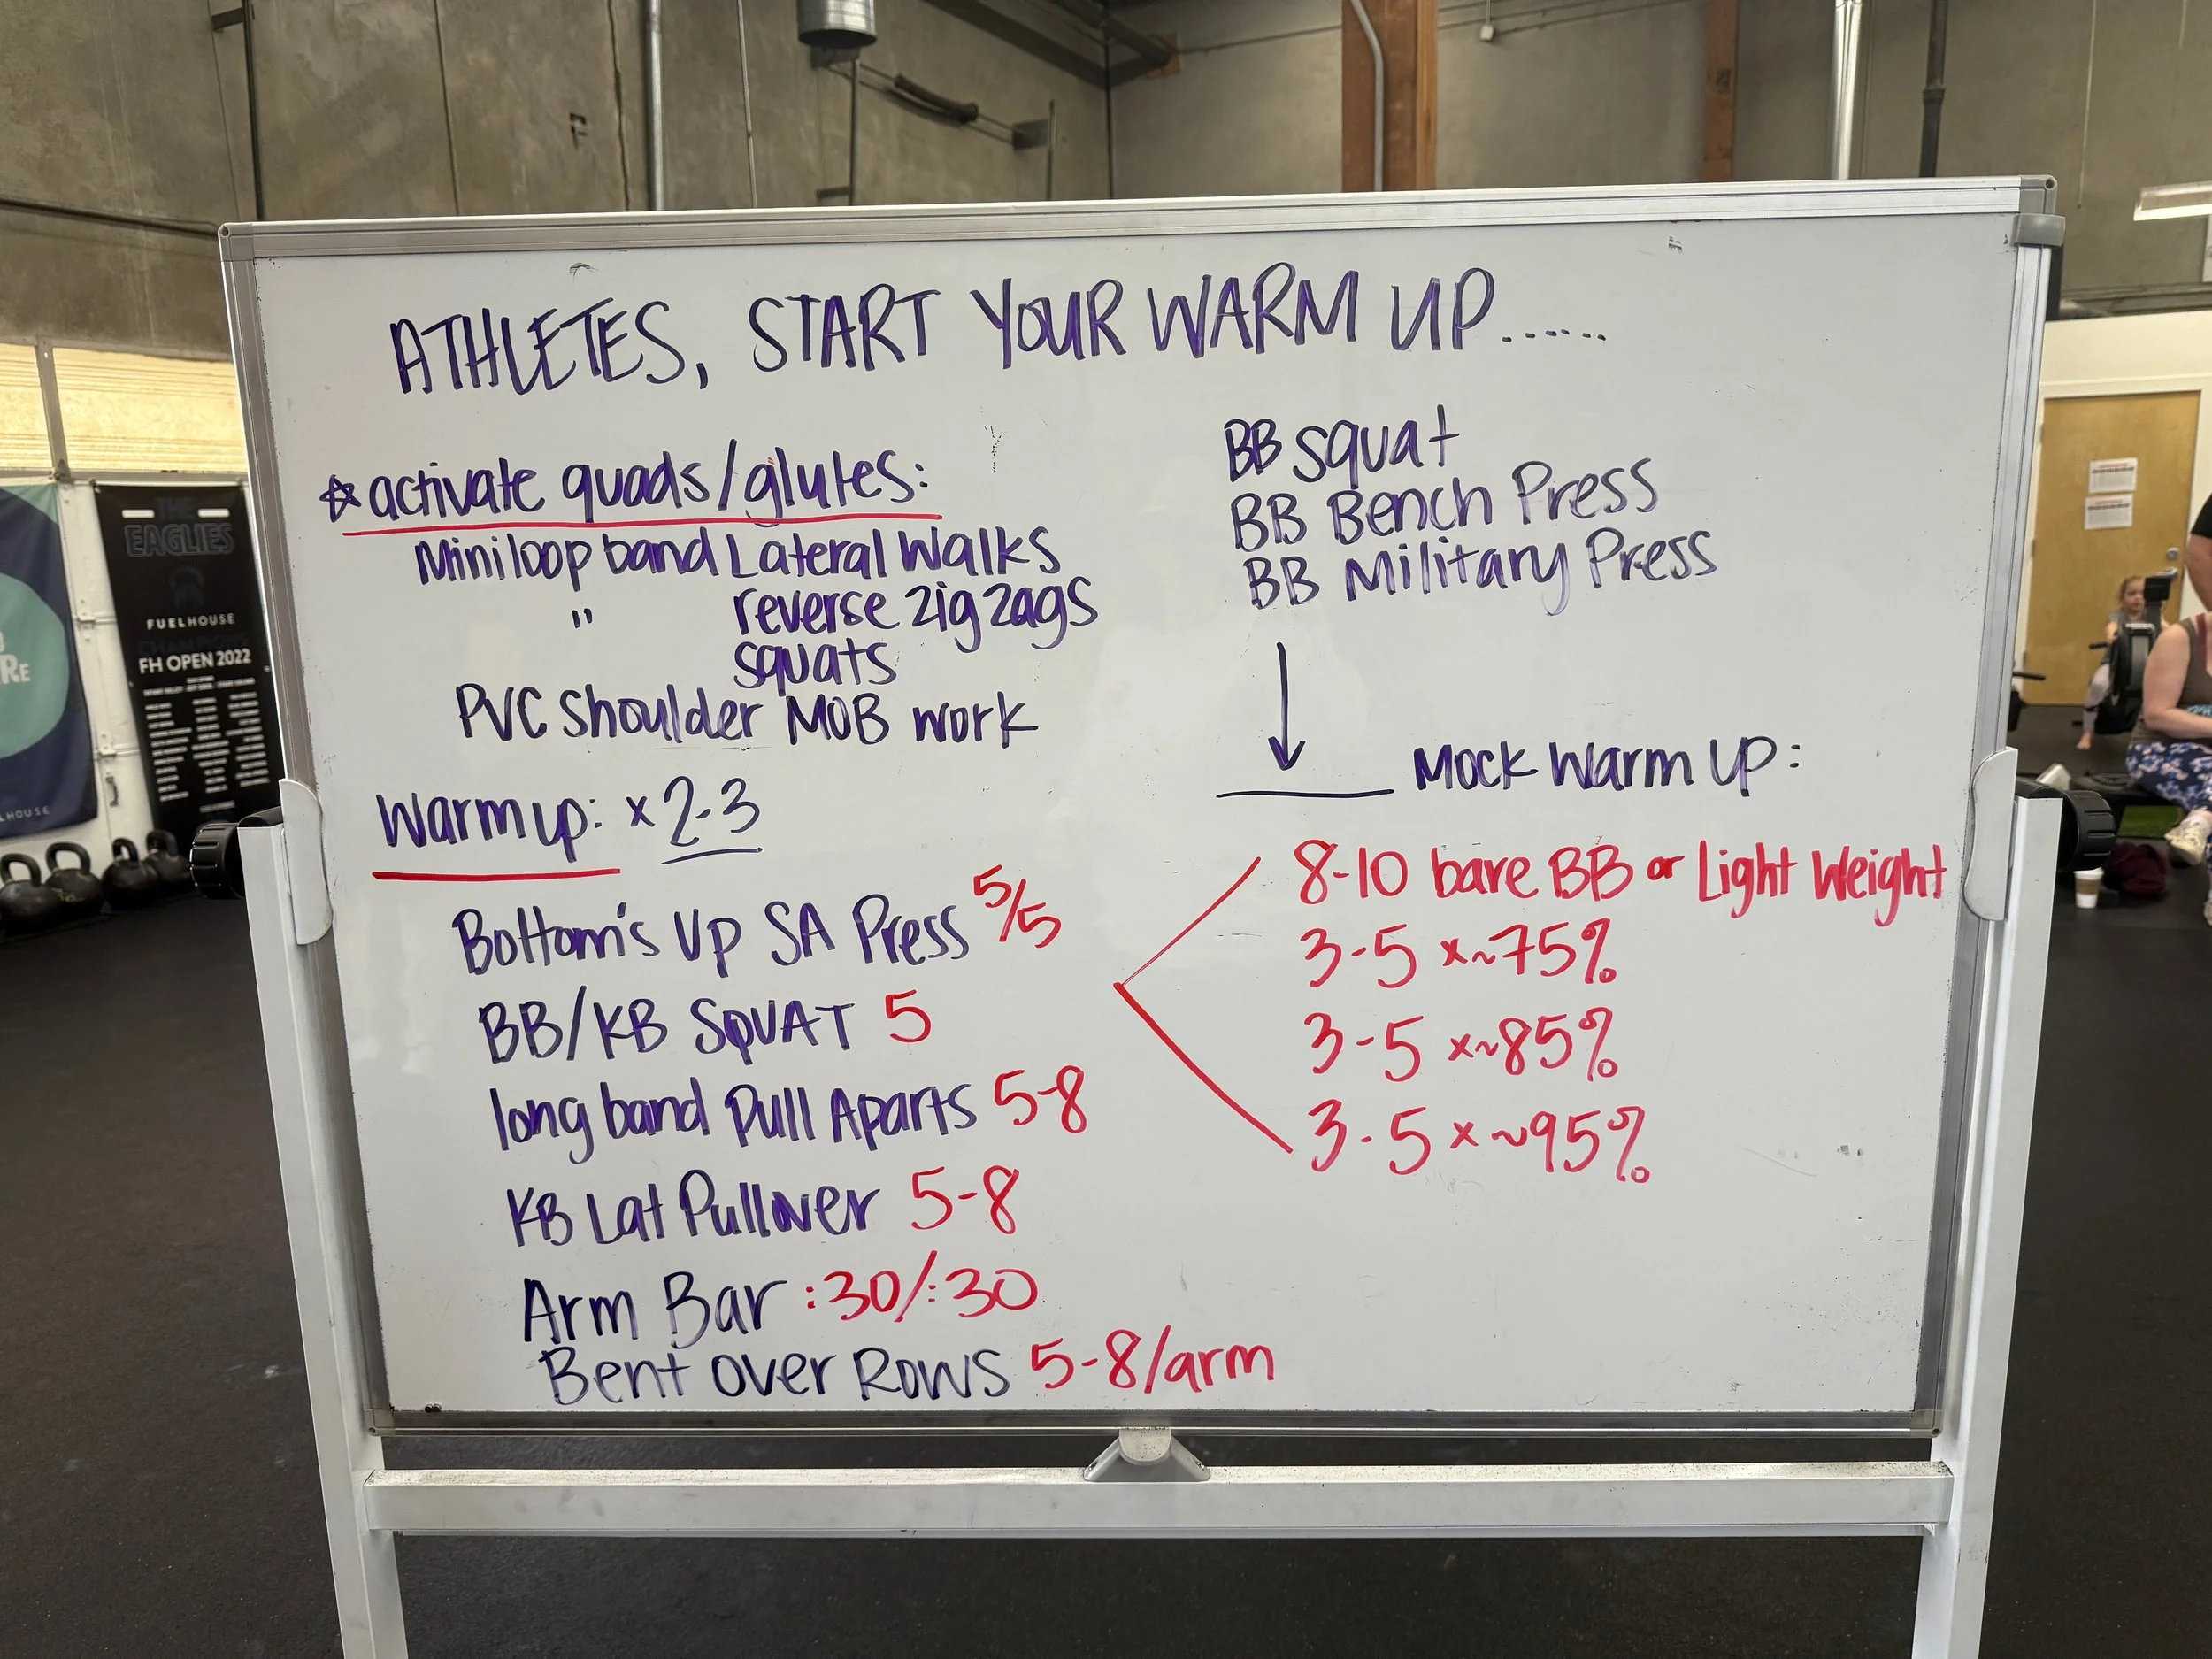 ATHLETES, START YOUR WARM UP......
☆ activate quads/glutes:
Mini loop band Lateral Walks
" reverse zig zags
squats
PVC shoulder MOB work
Warm up: x 2-3
Bottom's Up SA Press 5/5
BB/KB SQUAT 5
long band Pull Aparts 5-8
KB Lat Pullover 5-8
Arm Bar :30/:30
Bent over Rows 5-8/arm
BB squat
BB Bench Press
BB Military Press
Mock Warm Up:
8-10 bare BB or Light Weight
3-5 x~75%
3-5 x~85%
3-5 x ~95%
THE
EAGLIES
FUELHOUSE
CHAMPIONS
FH OPEN 2022